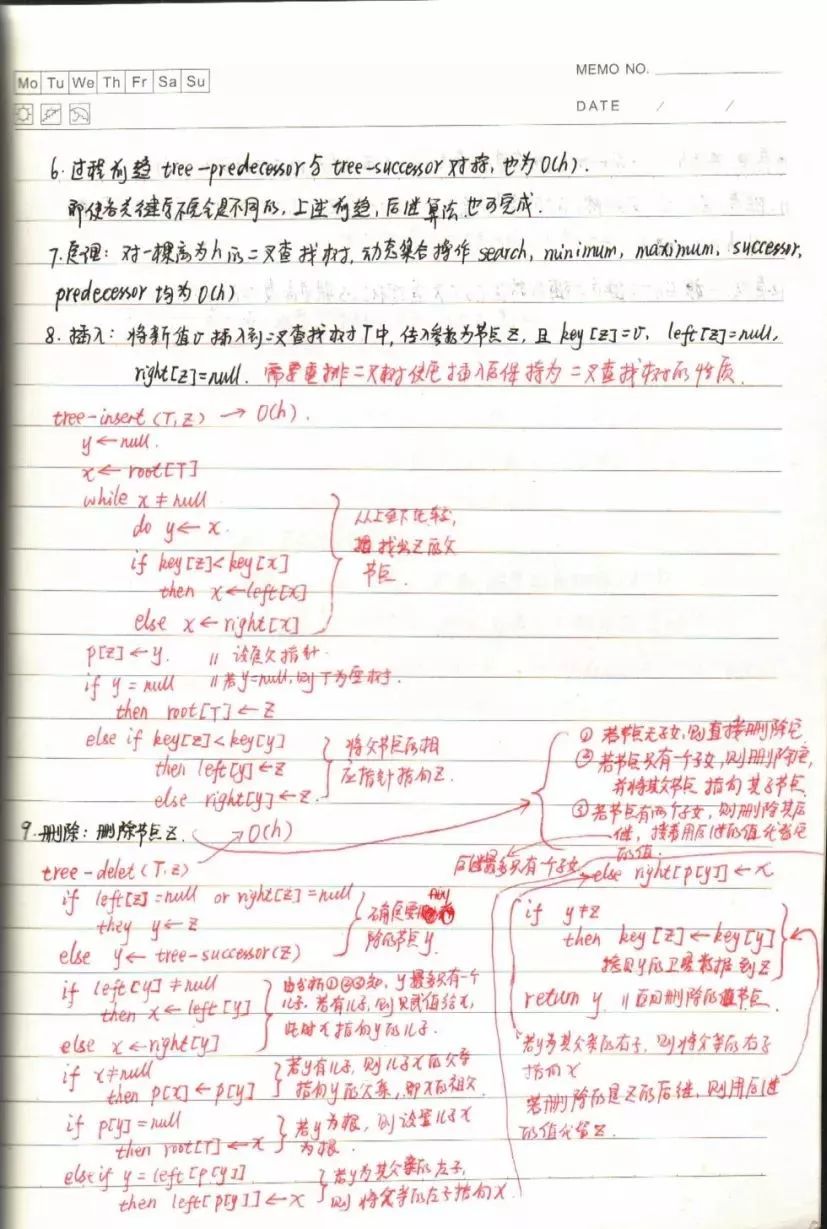 Mo Tu We Th Fr Sa Su
MEMO NO.
DATE / /
6. 过程前趋 tree-predecessor 与 tree-successor 对称, 也为 O(h).
即使各关键字不完全是不同的, 上述前趋, 后继算法也可完成.
7. 定理: 对一棵高为h的二叉查找树, 动态集合操作 search, minimum, maximum, successor,
predecessor 均为 O(h)
8. 插入: 将新值v插入到二叉查找树T中, 传入参数为节点Z, 且 key[z]=v, left[z]=null,
right[z]=null. 需要重排二叉树使它插入后保持为二叉查找树的性质.
tree-insert(T,z) → O(h).
y←null.
x←root[T]
while x≠null
do y←x.
if key[z]<key[x]
then x←left[x]
else x←right[x]
从上至下比较,
找出Z的父
节点.
p[z]←y. // 设定父指针
if y=null // 若y=null, 则T为空树.
then root[T]←z
else if key[z]<key[y]
then left[y]←z
else right[y]←z.
将父节点的相
应指针指向Z.
① 若节点无子女, 则直接删除它
② 若节点只有一个子女, 则删除它,
并将其父节点指向其子节点
③ 若节点有两个子女, 则删除其后
继, 接着用后继的值代替它
的值.
后继最多只有一个子女
9. 删除: 删除节点Z. → O(h)
tree-delet(T,z)
if left[z]=null or right[z]=null
they y←z
else y←tree-successor(z)
确定要删
除的节点y.
if left[y]≠null
then x←left[y]
else x←right[y]
由分析①②③知, y最多只有一个
儿子. 若有儿子, 则只赋值给x,
此时x指向y的儿子.
if x≠null
then p[x]←p[y]
若y有儿子, 则儿子x的父亲
指向y的父亲, 即x的祖父
if p[y]=null
then root[T]←x
若y为根, 则设置儿子x
为根.
else if y=left[p[y]]
then left[p[y]]←x
若y为其父亲的左子,
则将父亲的左子指向x
else right[p[y]]←x
if y≠z
then key[z]←key[y]
拷贝y的卫星数据到z
return y. // 返回删除的节点
若y为其父亲的右子, 则将父亲的右子
指向x
若删除的是Z的后继, 则用后继
的值代替Z.